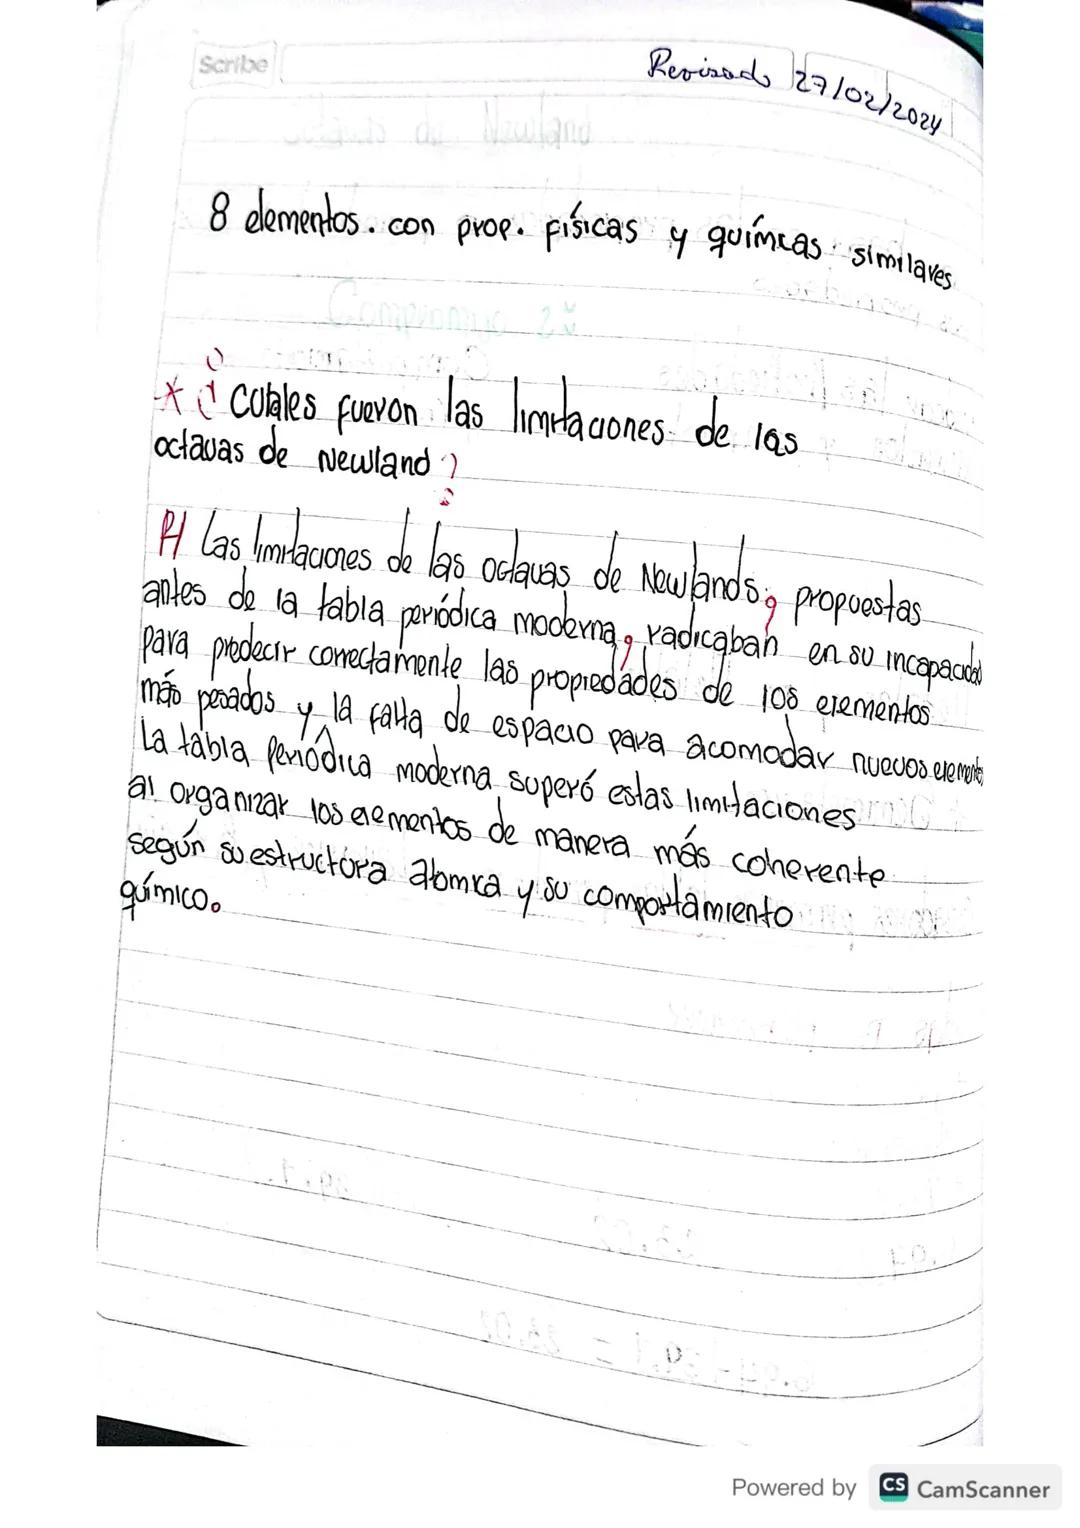 Scribe
Revisado 27/02/2024
8 elementos. con prop. físicas y químicas similares
* ¿Cuales fueron las limitaciones de las
octavas de Newland?
R/ Las limitaciones de las octavas de Newlands, propuestas
antes de la tabla periódica moderna, radicaban en su incapacidad
para predecir correctamente las propiedades de los elementos
más pesados y la falta de espacio para acomodar nuevos elementos
La tabla periódica moderna superó estas limitaciones
al organizar los elementos de manera más coherente
según su estructura atomica y su comportamiento
químico.
Powered by CS CamScanner